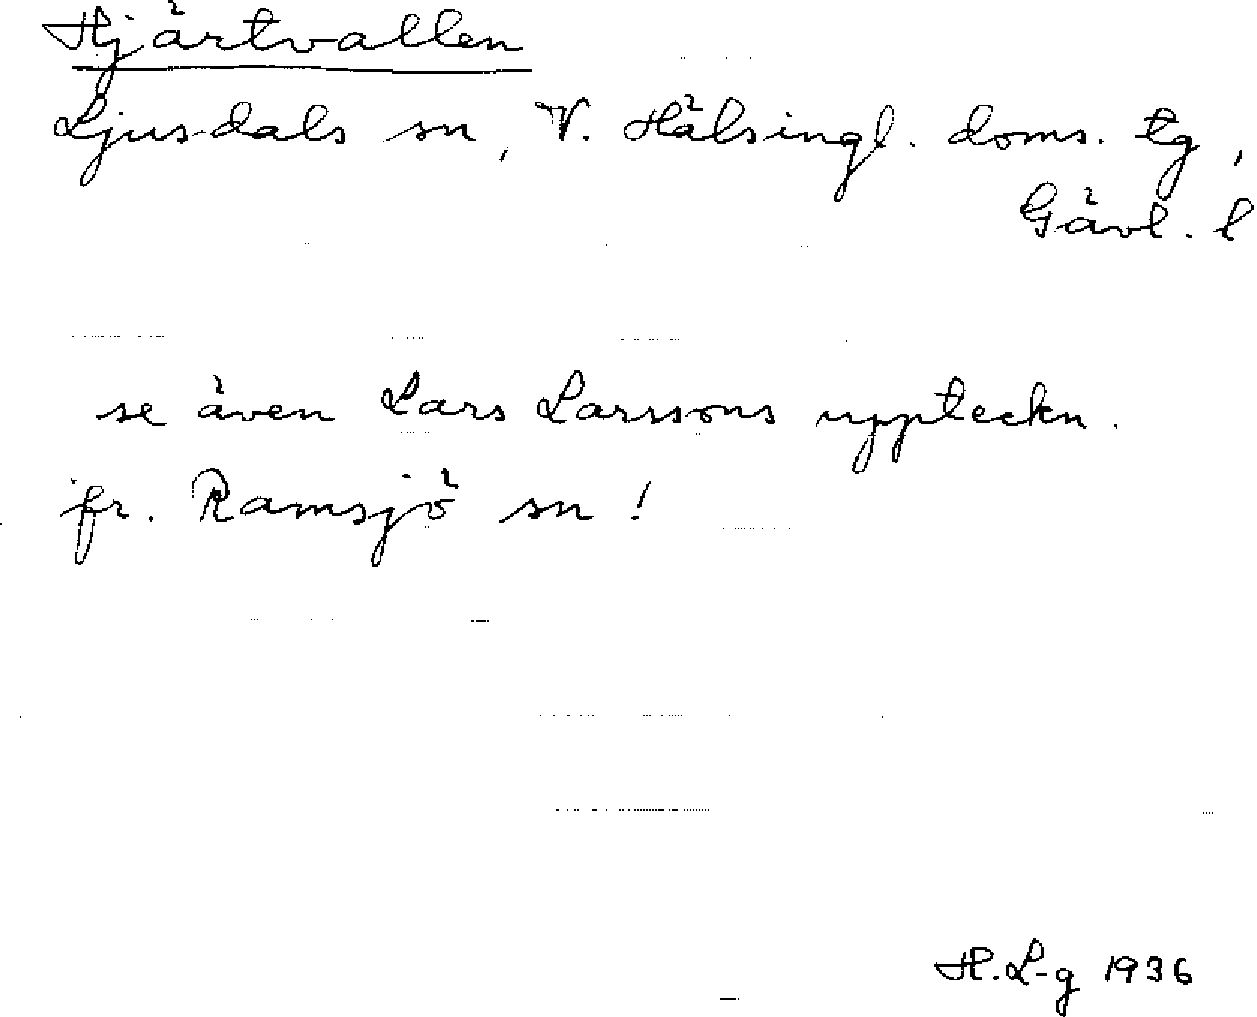 Hjärtvallen
Ljusdals sn, V. Hälsingl. doms. tg,
Gävl. l
se även Lars Larssons uppteckn.
fr. Ramsjö sn!
H. L-g 1936